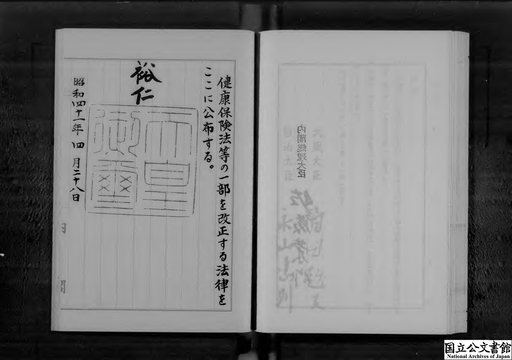 健康保険法等の一部を改正する法律を
ここに公布する。
裕仁
天皇御璽
昭和四十一年四月二十八日
内閣総理大臣
国立公文書館
National Archives of Japan